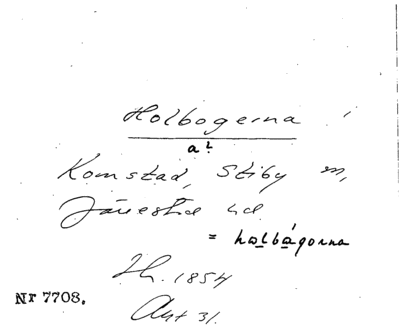 Holbogerna i
a?
Komstad, Stiby m,
Järrestad hd.
= holbágorna
Jh. 1854
Akt 31.
Nr 7708.